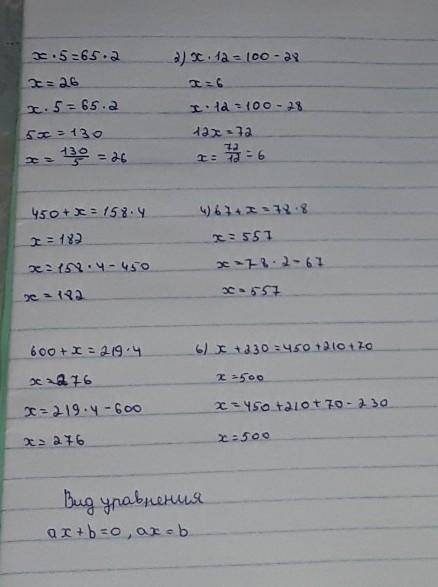 x·5=65·2
x=26
x·5=65·2
5x=130
x=130/5=26
2) x·12=100-28
x=6
x·12=100-28
12x=72
x=72/12=6
450+x=158·4
x=182
x=158·4-450
x=182
4) 67+x=78·8
x=557
x=78·2-67
x=557
600+x=219·4
x=276
x=219·4-600
x=276
6) x+230=450+210+70
x=500
x=450+210+70-230
x=500
Вид уравнения
ax+b=0, ax=b